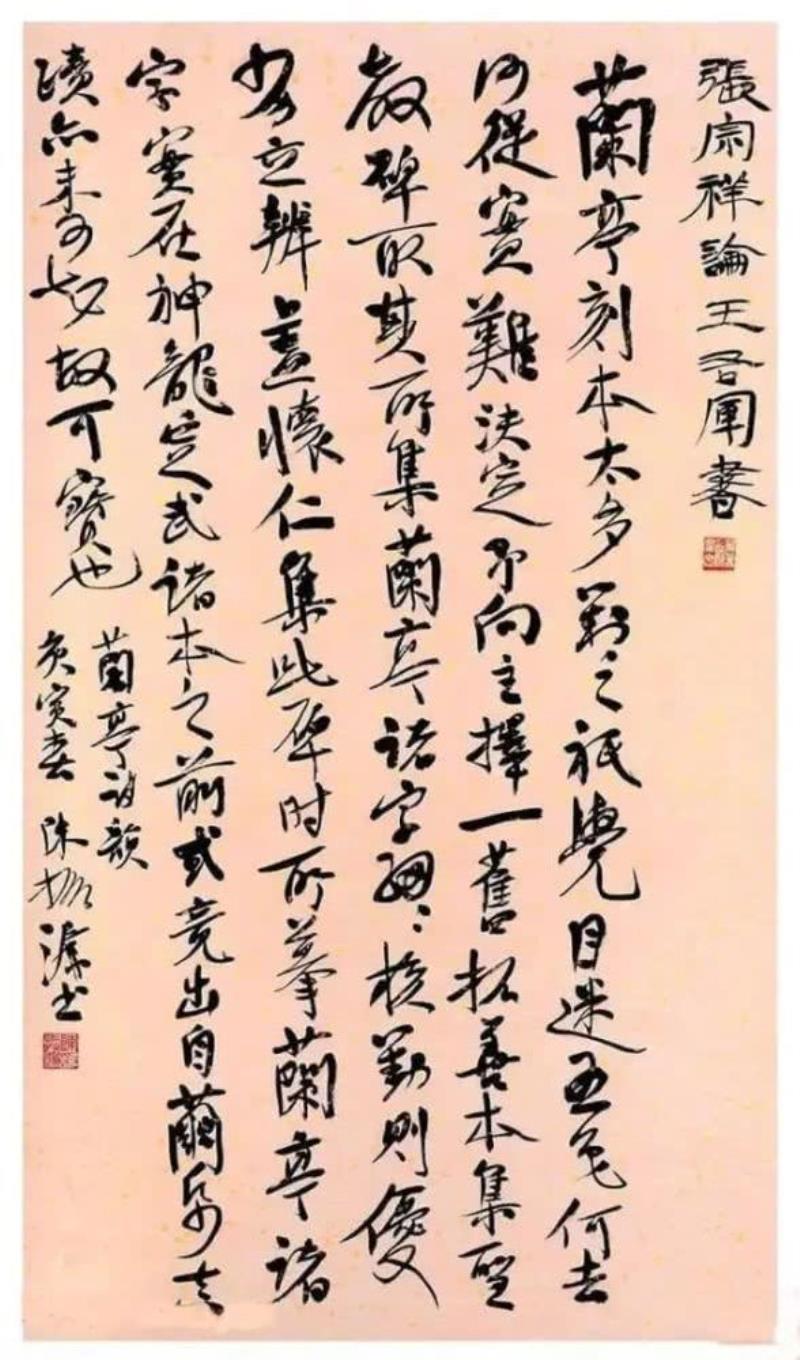 張宗祥論王右軍書
蘭亭刻本太多對之祇覺目迷五色何去
何從實難決定予向主擇一舊拓善本集聖
教碑取其所集蘭亭諸字細〻校勘則優
劣立辨蓋懷仁集此碑時所摹蘭亭諸
字實在神龍定武諸本之前或竟出自繭紙真
蹟亦未可知故可寶也
蘭亭詩韻
庚寅春 陳振濂書